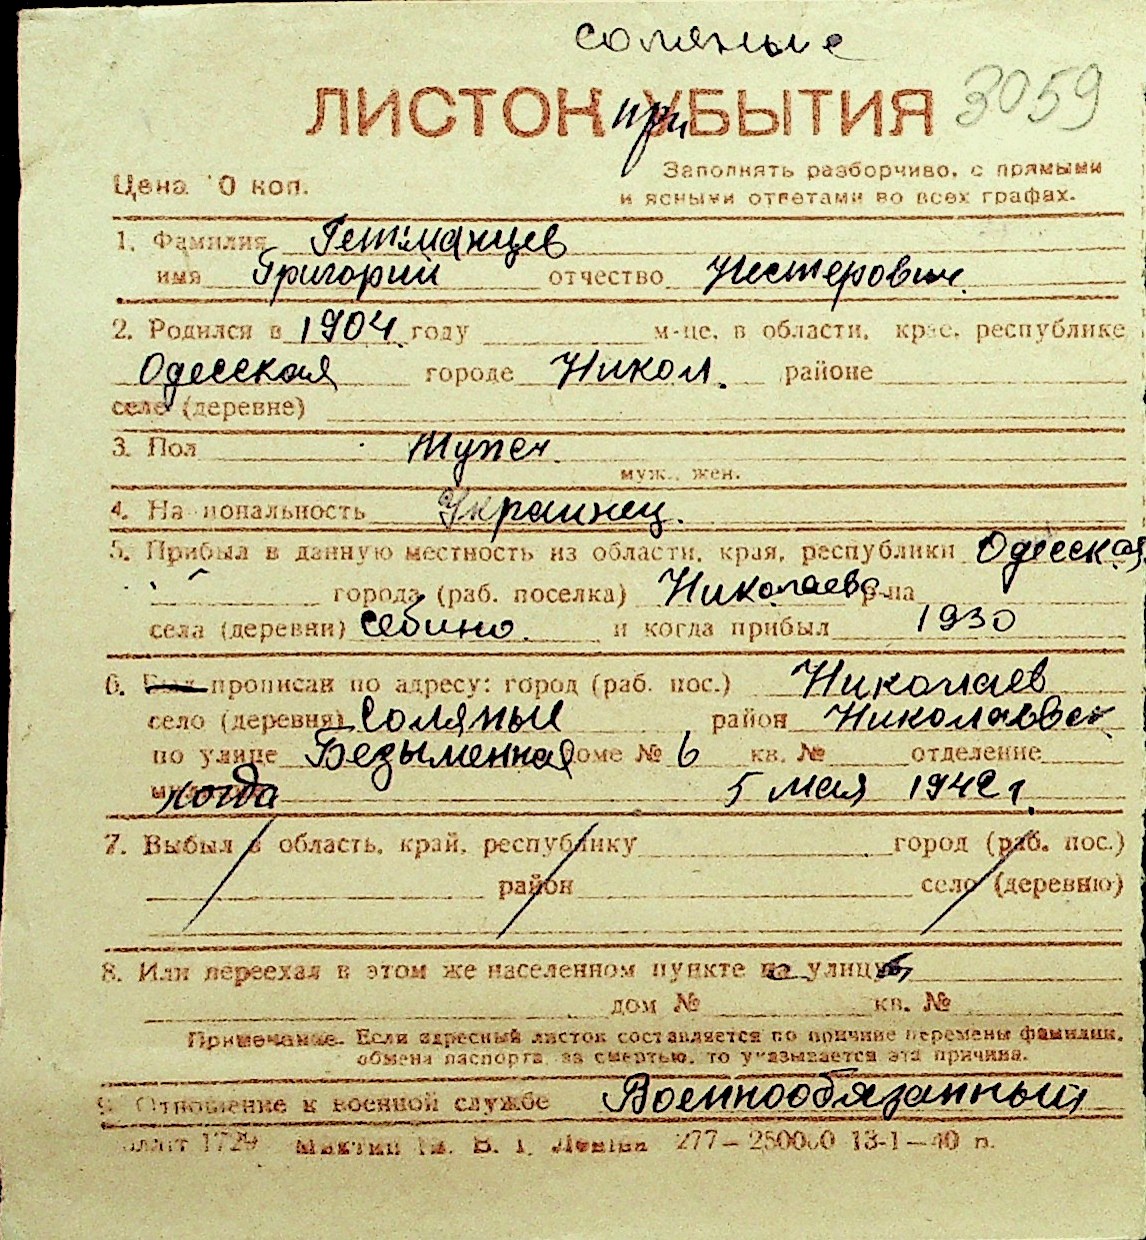 Соляные
ЛИСТОК при УБЫТИЯ 3059
Цена 10 коп. Заполнять разборчиво, с прямыми
и ясными ответами во всех графах.
1. Фамилия Гетманцев
имя Григорий отчество Нестерович.
2. Родился в 1904 году м-це, в области, крае, республике
Одесская городе Никол. районе
селе (деревне)
3. Пол Мужен.
муж., жен.
4. Национальность Украинец.
5. Прибыл в данную местность из области, края, республики Одесская
города (раб. поселка) Николаев р-на
села (деревни) Себино и когда прибыл 1930
6. Был прописан по адресу: город (раб. пос.) Николаев
село (деревня) Соляные район Николаевск
по улице Безыменная доме № 6 кв. № отделение
когда 5 мая 1942 г.
7. Выбыл в область, край, республику город (раб. пос.)
район село (деревню)
8. Или переехал в этом же населенном пункте на улицу
дом № кв. №
Примечание. Если адресный листок составляется по причине перемены фамилии,
обмена паспорта, за смертью, то указывается эта причина.
9. Отношение к военной службе Военнообязанный
1729 277—250000 13-1—40 п.